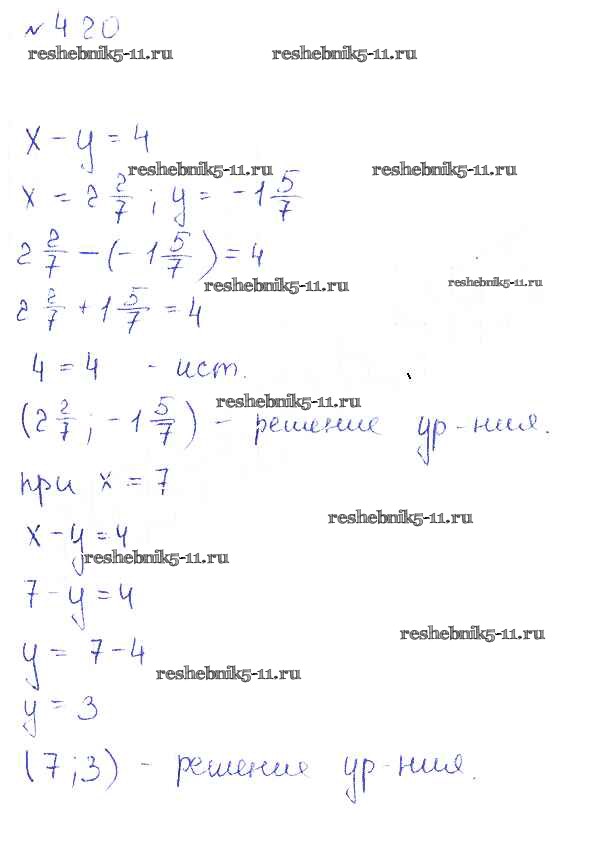 № 420
reshebnik5-11.ru reshebnik5-11.ru
x - y = 4
reshebnik5-11.ru reshebnik5-11.ru
x = 2 2/7 ; y = -1 5/7
2 2/7 - (-1 5/7) = 4
reshebnik5-11.ru reshebnik5-11.ru
2 2/7 + 1 5/7 = 4
4 = 4 - ист.
reshebnik5-11.ru
(2 2/7 ; -1 5/7) - решение ур-ния.
при x = 7
reshebnik5-11.ru
x - y = 4
reshebnik5-11.ru
7 - y = 4
reshebnik5-11.ru
y = 7 - 4
reshebnik5-11.ru
y = 3
(7 ; 3) - решение ур-ния.